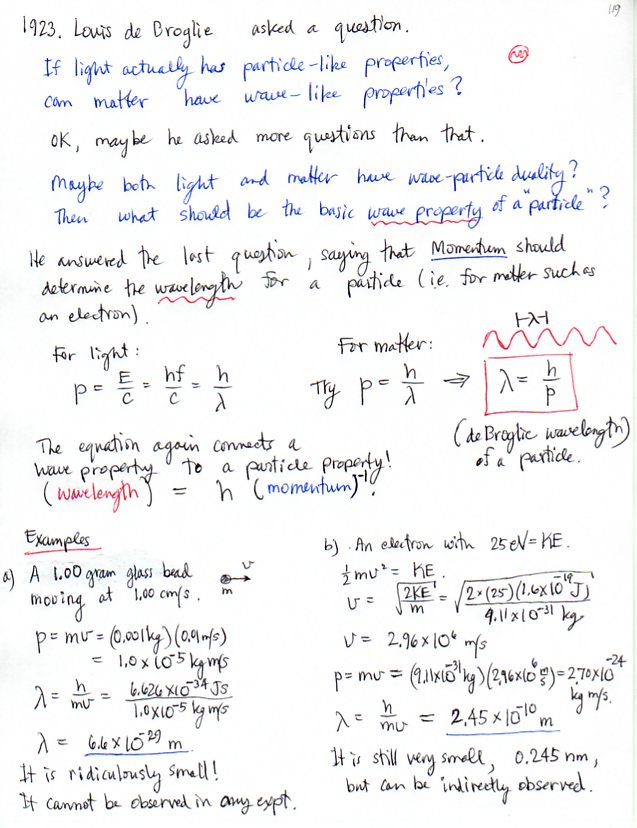 119
1923. Louis de Broglie asked a question.
If light actually has particle-like properties,
can matter have wave-like properties?
OK, maybe he asked more questions than that.
Maybe both light and matter have wave-particle duality?
Then what should be the basic wave property of a "particle"?
He answered the last question, saying that Momentum should
determine the wavelength for a particle (i.e. for matter such as
an electron).
For light:
p = E/c = hf/c = h/λ
For matter:
Try p = h/λ ⇒ λ = h/p
⊢λ⊣
(de Broglie wavelength)
of a particle.
The equation again connects a
wave property to a particle property!
(wavelength) = h (momentum)⁻¹.
Examples
a) A 1.00 gram glass bead
moving at 1.00 cm/s.
m v
p = mv = (0.001kg)(0.01m/s)
= 1.0×10⁻⁵ kg m/s
λ = h/mv = 6.626×10⁻³⁴ Js / 1.0×10⁻⁵ kg m/s
λ = 6.6×10⁻²⁹ m.
It is ridiculously small!
It cannot be observed in any expt.
b) An electron with 25eV = KE.
½mv² = KE
v = √(2KE/m) = √(2×(25)(1.6×10⁻¹⁹ J) / 9.11×10⁻³¹ kg)
v = 2.96×10⁶ m/s
p = mv = (9.11×10⁻³¹ kg)(2.96×10⁶ m/s) = 2.70×10⁻²⁴
kg m/s.
λ = h/mv = 2.45×10⁻¹⁰ m
It is still very small, 0.245 nm,
but can be indirectly observed.